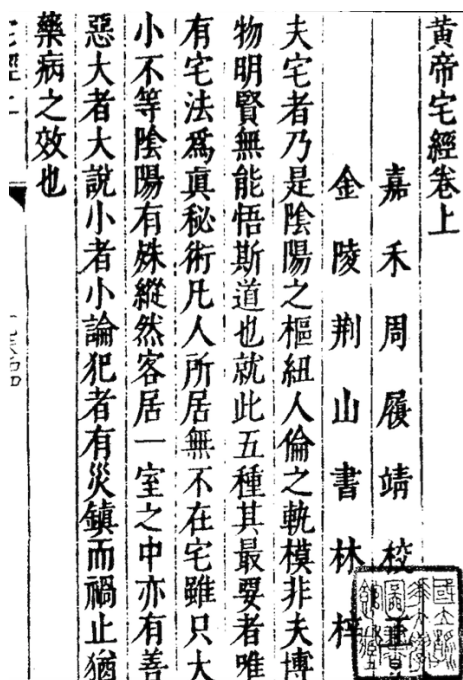 黄帝宅經卷上
嘉禾周履靖校正
金陵荆山書林梓
夫宅者乃是陰陽之樞紐人倫之軌模非夫博
物明賢無能悟斯道也就此五種其最要者唯
有宅法爲真秘術凡人所居無不在宅雖只大
小不等陰陽有殊縱然客居一室之中亦有善
惡大者大說小者小論犯者有災鎮而禍止猶
藥病之效也